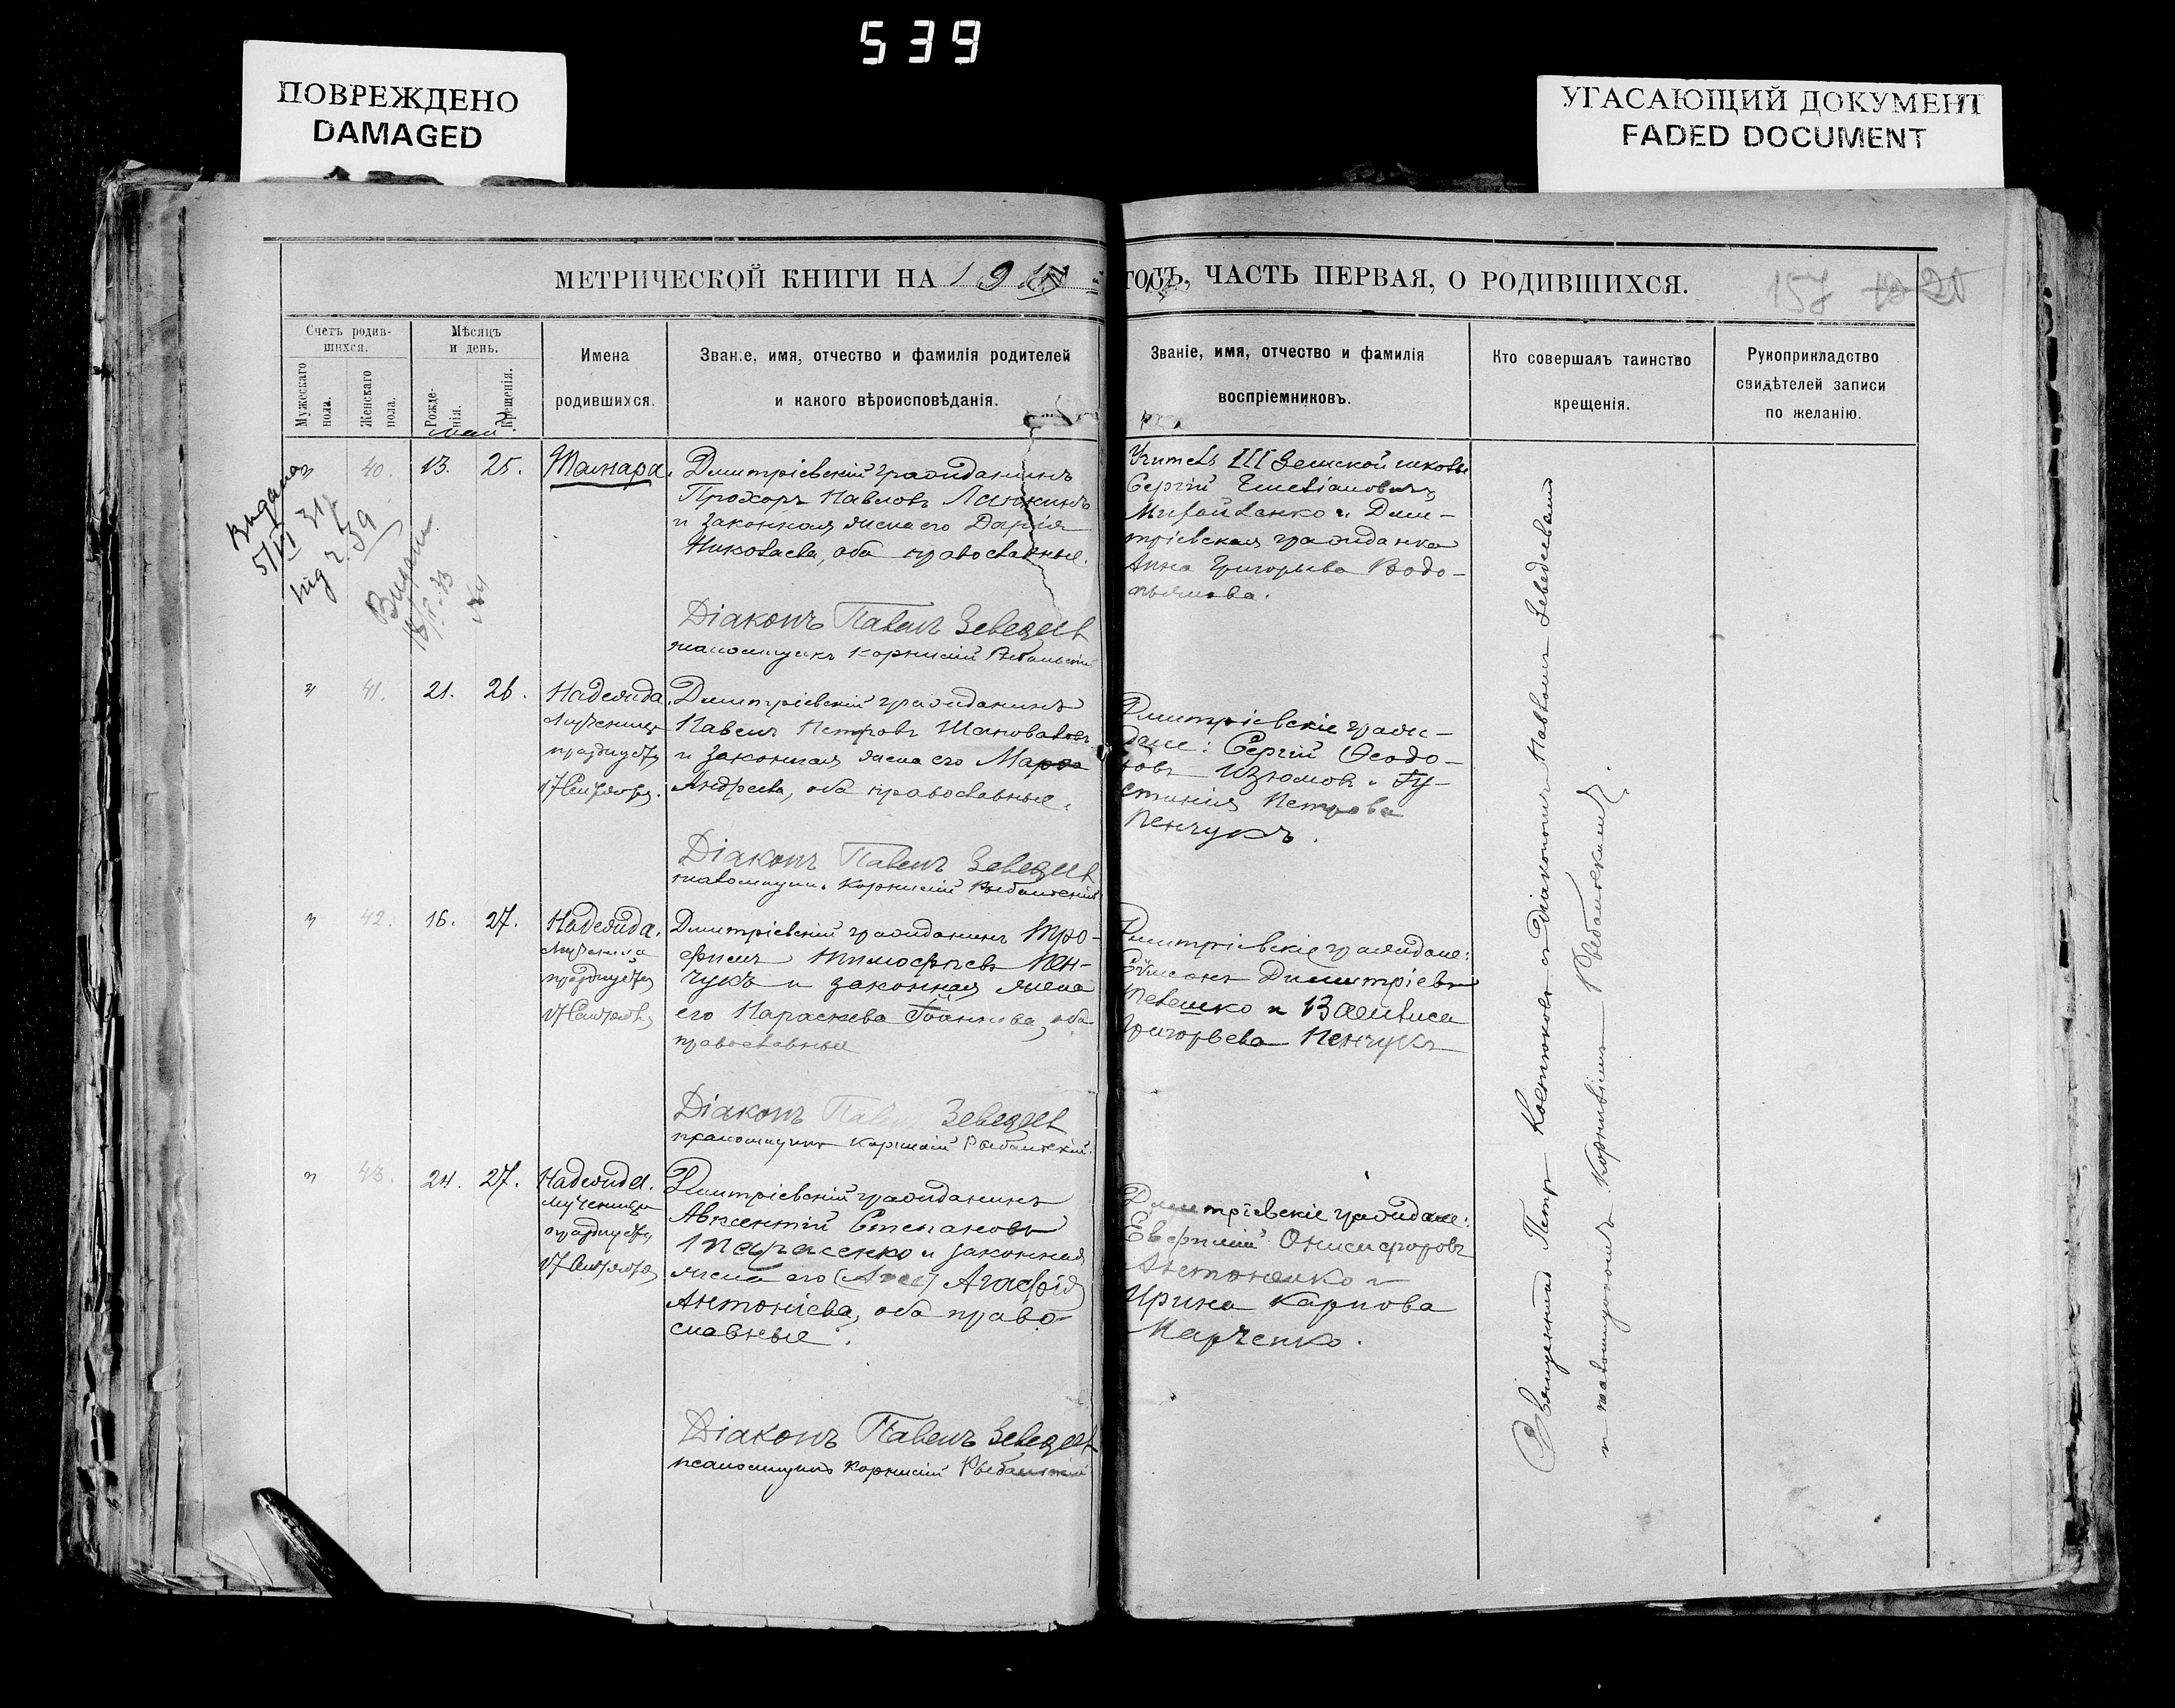 539
ПОВРЕЖДЕНО
DAMAGED
УГАСАЮЩИЙ ДОКУМЕНТ
FADED DOCUMENT
МЕТРИЧЕСКОЙ КНИГИ НА 19
ГОДЪ, ЧАСТЬ ПЕРВАЯ, О РОДИВШИХСЯ.
157
Счетъ родив-
шихся.
Мужескаго
пола.
Женскаго
пола.
Мѣсяцъ
и день.
Рожде-
нія.
Крещенія.
Имена
родившихся.
Званіе, имя, отчество и фамилія родителей
и какого вѣроисповѣданія.
Званіе, имя, отчество и фамилія
воспріемниковъ.
Кто совершалъ таинство
крещенія.
Рукоприкладство
свидѣтелей записи
по желанію.
май
" 40. 13. 25. Тамара.
Дмитріевскій гражданинъ
Прохоръ Павловъ
и законная жена его Дарія
Николаева, оба православные.
Діаконъ Павелъ Зеведеевъ
псаломщикъ Корнилій Рыбальскій
Учитель III Земской школы
Сергій Емеліановичъ
Михайленко и Дми-
тріевская гражданка
Анна Григорьева Водо-
пьянова.
" 41. 21. 26. Надежда.
Мученица
празднуетъ
17 Сентября.
Дмитріевскій гражданинъ
Павелъ Петровъ Шаповаловъ
и законная жена его
Андреева, оба православные.
Діаконъ Павелъ Зеведеевъ
псаломщикъ Корнилій Рыбальскій
Дмитріевскіе граж-
дане: Сергій Ѳеодо-
ровъ Изюмовъ и Іу-
стинія Петрова
Пенчукъ.
" 42. 16. 27. Надежда.
Мученица
празднуетъ
17 Сентября
Дмитріевскій гражданинъ Тро-
фимъ Тимофѣевъ Пен-
чукъ и законная жена
его Параскева Іоаннова, оба
православные
Діаконъ Павелъ Зеведеевъ
псаломщикъ Корнилій Рыбальскій.
Дмитріевскіе граждане:
Димитріевъ
и Василиса
Григорьева Пенчукъ
" 43. 24. 27. Надежда.
Мученица
празднуетъ
17 Сентября
Дмитріевскій гражданинъ
Авксентій Степановъ
Тарасенко и законная
жена его Агафія
Антоніева, оба право-
славные.
Діаконъ Павелъ Зеведеевъ
псаломщикъ Корнилій Рыбальскій
Дмитріевскіе граждане:
Евфимій Онисифоровъ
Антоненко и
Ирина Карпова
Марченко.
Священникъ Петръ Костюковъ съ Діакономъ Павломъ Зеведеевымъ
и псаломщикомъ Корниліемъ Рыбальскимъ.